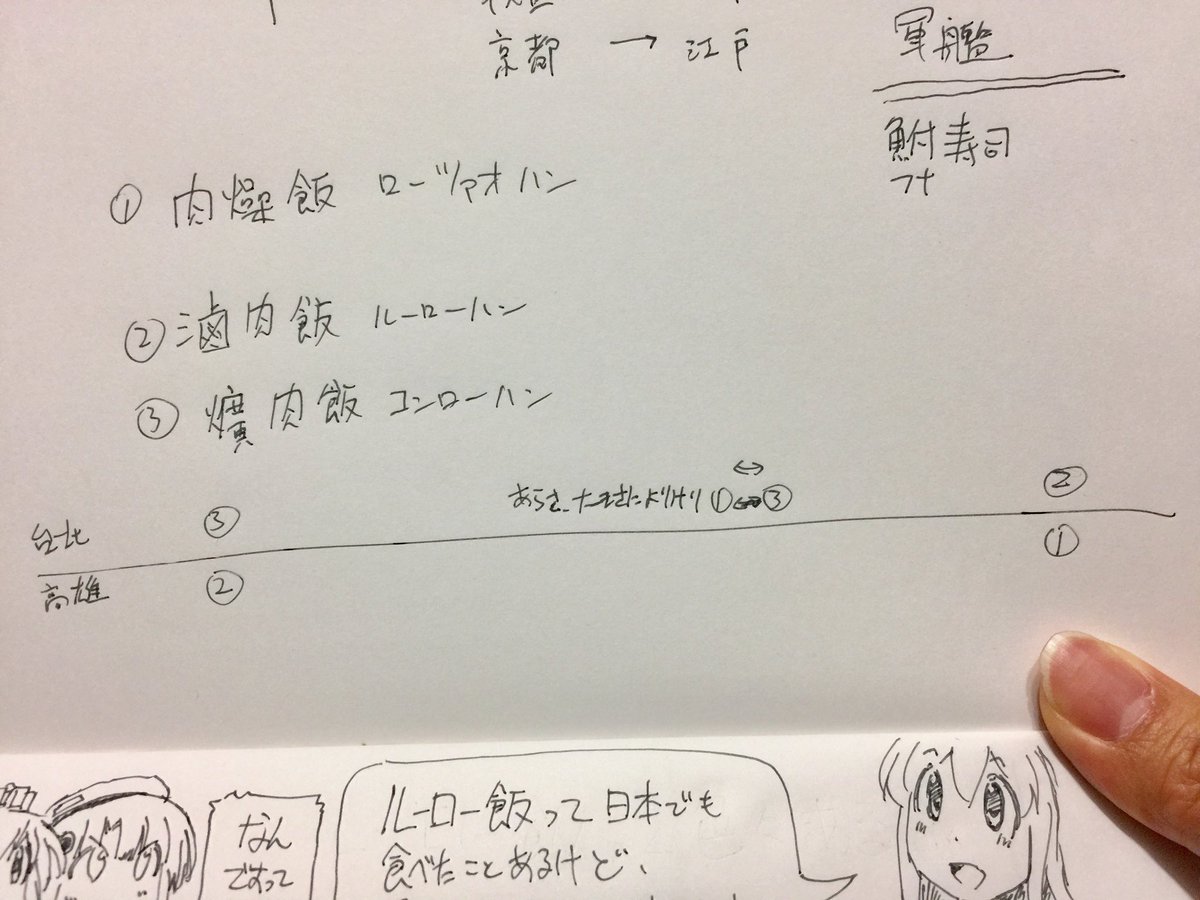 京都 → 江戸
軍艦
鮒寿司
フナ
① 肉燥飯 ローツァオハン
② 滷肉飯 ルーローハン
③ 爌肉飯 コンローハン
↔
① ↔ ③
台北 ③ ②
高雄 ② ①
なん
ですって
ルーロー飯って日本でも
食べたことあるけど、